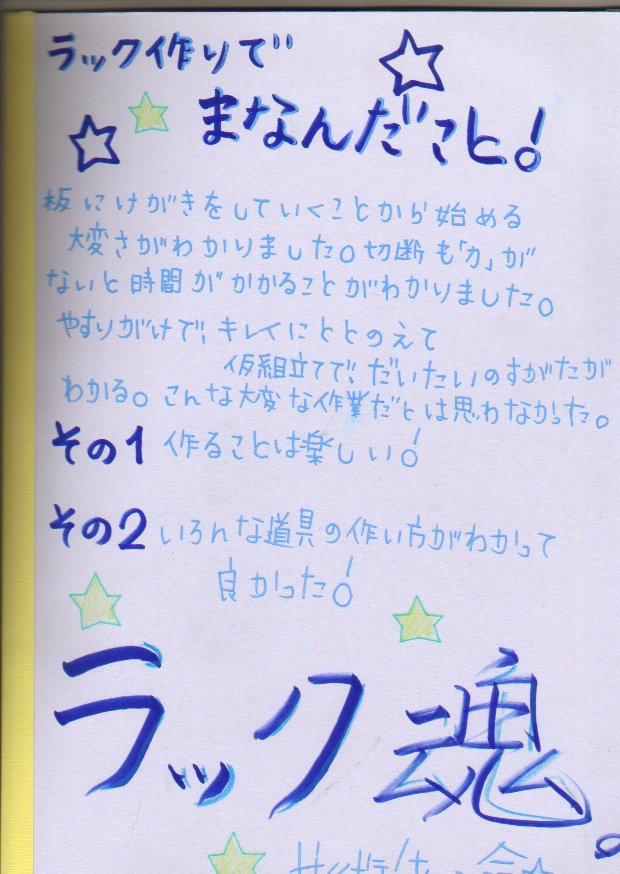 ラック作りで
まなんだこと!
板にけがきをしていくことから始める
大変さがわかりました。切断も「力」が
ないと時間がかかることがわかりました。
やすりがけで、キレイにととのえて
仮組立てで、だいたいのすがたが
わかる。こんな大変な作業だとは思わなかった。
その1 作ることは楽しい!
その2 いろんな道具の作い方がわかって
良かった!
ラック魂